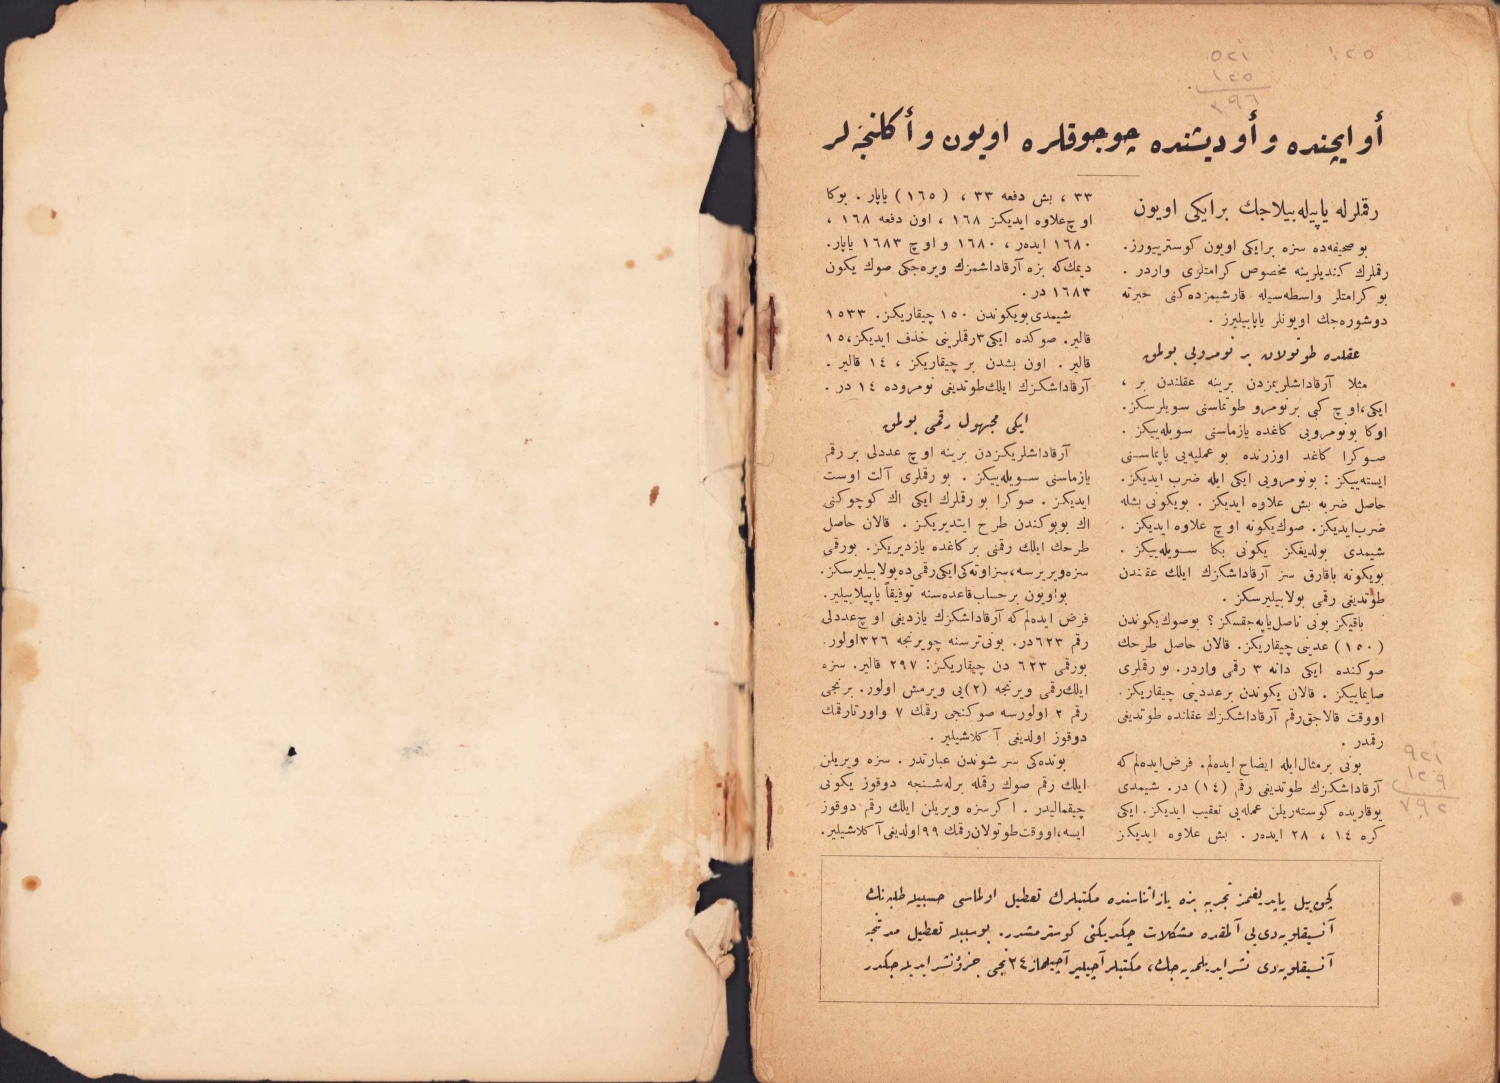 ٥٢١
١٢٥
٣٩٦
١٢٥
أو ايچنده و أو ديشنده چوجوقلره اويون و أكلنجه لر
رقملرله ياپيله بيلاجك بر ايكى اويون
بو صحيفه ده سزه بر ايكى اويون كوستريیورز.
رقملرك كنديلرينه مخصوص كرامتلرى واردر .
بو كرامتلر واسطه سيله قارشيمزده كنى حيرته
دوشوره جك اويونلر ياپابيليرز .
عقلنده طوتولان بر نومرويى بولمق
مثلا آرقداشلريمزدن برينه عقلندن بر ،
ايكى، اوچ كبى بر نومرو طوتماسنى سويلرسكز.
اوكا بو نومرويى كاغده يازماسنى سويله ييكز .
صوكرا كاغد اوزرنده بو عمليه يى ياپماسنى
ايسته ييكز : بو نومرويى ايكى ايله ضرب ايديكز.
حاصل ضربه بش علاوه ايديكز . بو يكونى بشله
ضرب ايديكز. صوك يكونه اوچ علاوه ايديكز .
شيمدى بولديغكز يكونى بكا سويله ييكز .
بو يكونه باقارق سز آرقاداشكزك ايلك عقلندن
طوتديغى رقمى بولابيليرسكز .
باقيكز بونى ناصل ياپه جقسكز ؟ بو صوك يكوندن
(١٥٠) عدينى چيقاريكز. قالان حاصل طرحك
صوكنده ايكى دانه ٣ رقمى واردر. بو رقملرى
صايماييكز . قالان يكوندن بر عددينى چيقاريكز.
او وقت قالاجق رقم آرقاداشكزك عقلنده طوتديغى
رقمدر .
بونى بر مثال ايله ايضاح ايده لم. فرض ايده لم كه
آرقاداشكزك طوتديغى رقم (١٤) در. شيمدى
يوقاريده كوسته ريلن عمله يى تعقيب ايديكز. ايكى
كره ١٤ ، ٢٨ ايده ر . بش علاوه ايديكز
٣٣ ، بش دفعه ٣٣ ، (١٦٥) ياپار . بوكا
اوچ علاوه ايديكز ١٦٨ ، اون دفعه ١٦٨ ،
١٦٨٠ ايده ر ، ١٦٨٠ و اوچ ١٦٨٣ ياپار.
ديمك كه بزه آرقاداشمزك ويره جكى صوك يكون
١٦٨٣ در .
شيمدى بو يكوندن ١٥٠ چيقاريكز. ١٥٣٣
قالير. صوكده ايكى ٣ رقملرينى حذف ايديكز، ١٥
قالير . اون بشدن بر چيقاريكز ، ١٤ قالير .
آرقاداشكزك ايلك طوتديغى نومروده ١٤ در .
ايكى مجهول رقمى بولمق
آرقاداشلريكزدن برينه اوچ عددلى بر رقم
يازماسنى سويله ييكز . بو رقملرى آلت اوست
ايديكز . صوكرا بو رقملرك ايكى اك كوچوكنى
اك بويوكندن طرح ايتديريكز . قالان حاصل
طرحك ايلك رقمنى بر كاغده يازديريكز. بو رقمى
سزه ويريرسه، سز اوته كى ايكى رقمى ده بولابيليرسكز.
بو اويون بر حساب قاعده سنه توفيقاً ياپيلابيلير.
فرض ايده لم كه آرقاداشكزك يازديغى اوچ عددلى
رقم ٦٢٣ در. بونى ترسنه چويرنجه ٣٢٦ اولور.
بو رقمى ٦٢٣ دن چيقاريكز: ٢٩٧ قالير. سزه
ايلك رقمى ويرنجه (٢) يى ويرمش اولور. برنجى
رقم ٢ اولورسه صوكنجى رقمك ٧ و اورتا رقمك
دوقوز اولديغى آكلاشيلير .
بونده كى سر شوندن عبارتدر . سزه ويريلن
ايلك رقم صوك رقمله برله شنجه دوقوز يكونى
چيقماليدر . اكر سزه ويريلن ايلك رقم دوقوز
ايسه، او وقت طوتولان رقمك ٩٩ اولديغى آكلاشيلير.
٩٢١
١٢٩
٧٩٢
كچن ييل ياپديغمز تجربه بزه ياز اثناسنده مكتبلرك تعطيل اولماسى حسبيله طلبه نك
آنسيقلوپه دى يى آلمقده مشكلات چكديكنى كوسترمشدر. بو سببله تعطيل مدتنجه
آنسيقلوپه دى نشر ايديلميه جك، مكتبلر آچيلير آچيلماز ٢٤ نجى جزؤ نشر ايديله جكدر